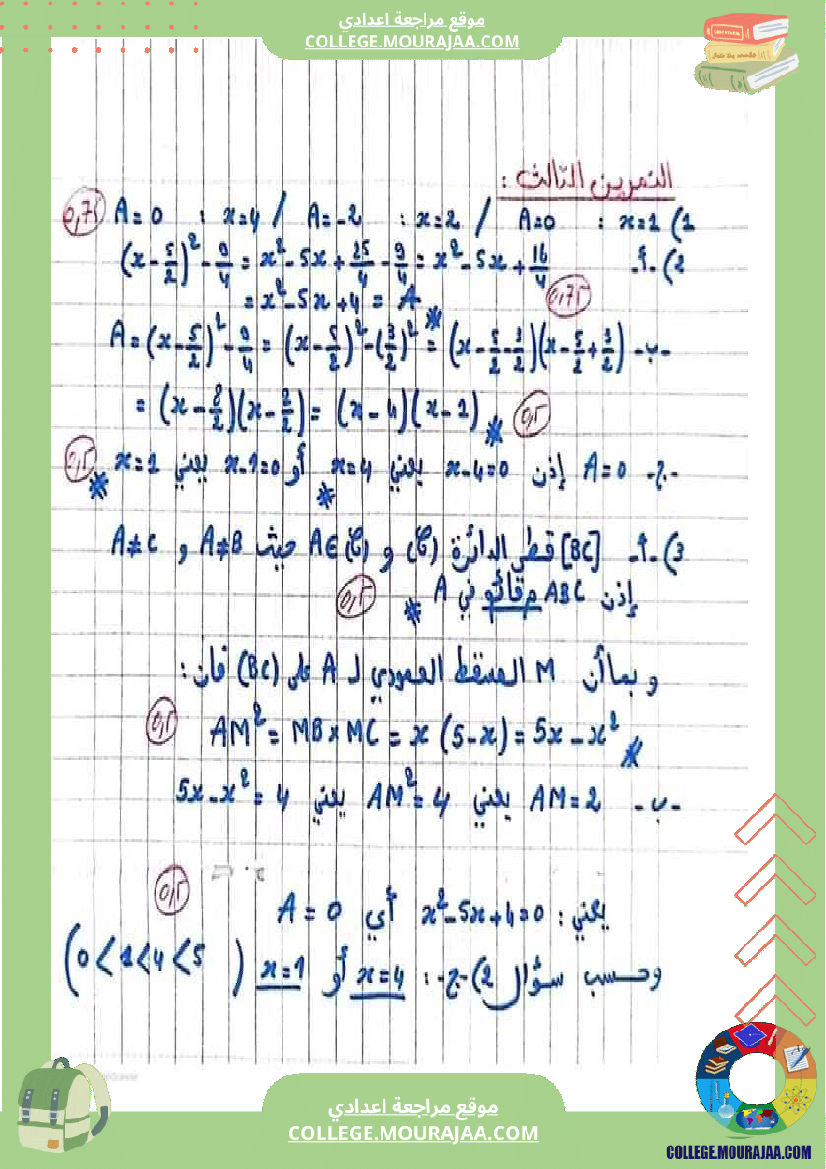 موقع مراجعة اعدادي
COLLEGE.MOURAJAA.COM
التمرين الثالث :
1) x=1 : A=0 / x=2 : A=-2 / x=4 : A=0 0,75
2) أ- (x-5/2)²-9/4 = x²-5x+25/4-9/4 = x²-5x+16/4
= x²-5x+4 = A 0,75
ب- A=(x-5/2)²-9/4 = (x-5/2)²-(3/2)² = (x-5/2-3/2)(x-5/2+3/2)
= (x-8/2)(x-2/2) = (x-4)(x-1) 0,5
ج- A=0 إذن x-4=0 يعني x=4 أو x-1=0 يعني x=1 0,5
3) أ- [BC] قطر الدائرة (C) و A∈(C) حيث A≠B و A≠C
إذن ABC م قائم في A 0,5
و بما أن M المسقط العمودي لـ A على (BC) فان :
AM²=MB×MC=x(5-x)=5x-x² 0,5
ب- AM=2 يعني AM²=4 يعني 5x-x²=4
0,5
يعني : x²-5x+4=0 أي A=0
وحسب سؤال 2) ج- : x=4 أو x=1 (0<1<4<5)
موقع مراجعة اعدادي
COLLEGE.MOURAJAA.COM
COLLEGE.MOURAJAA.COM